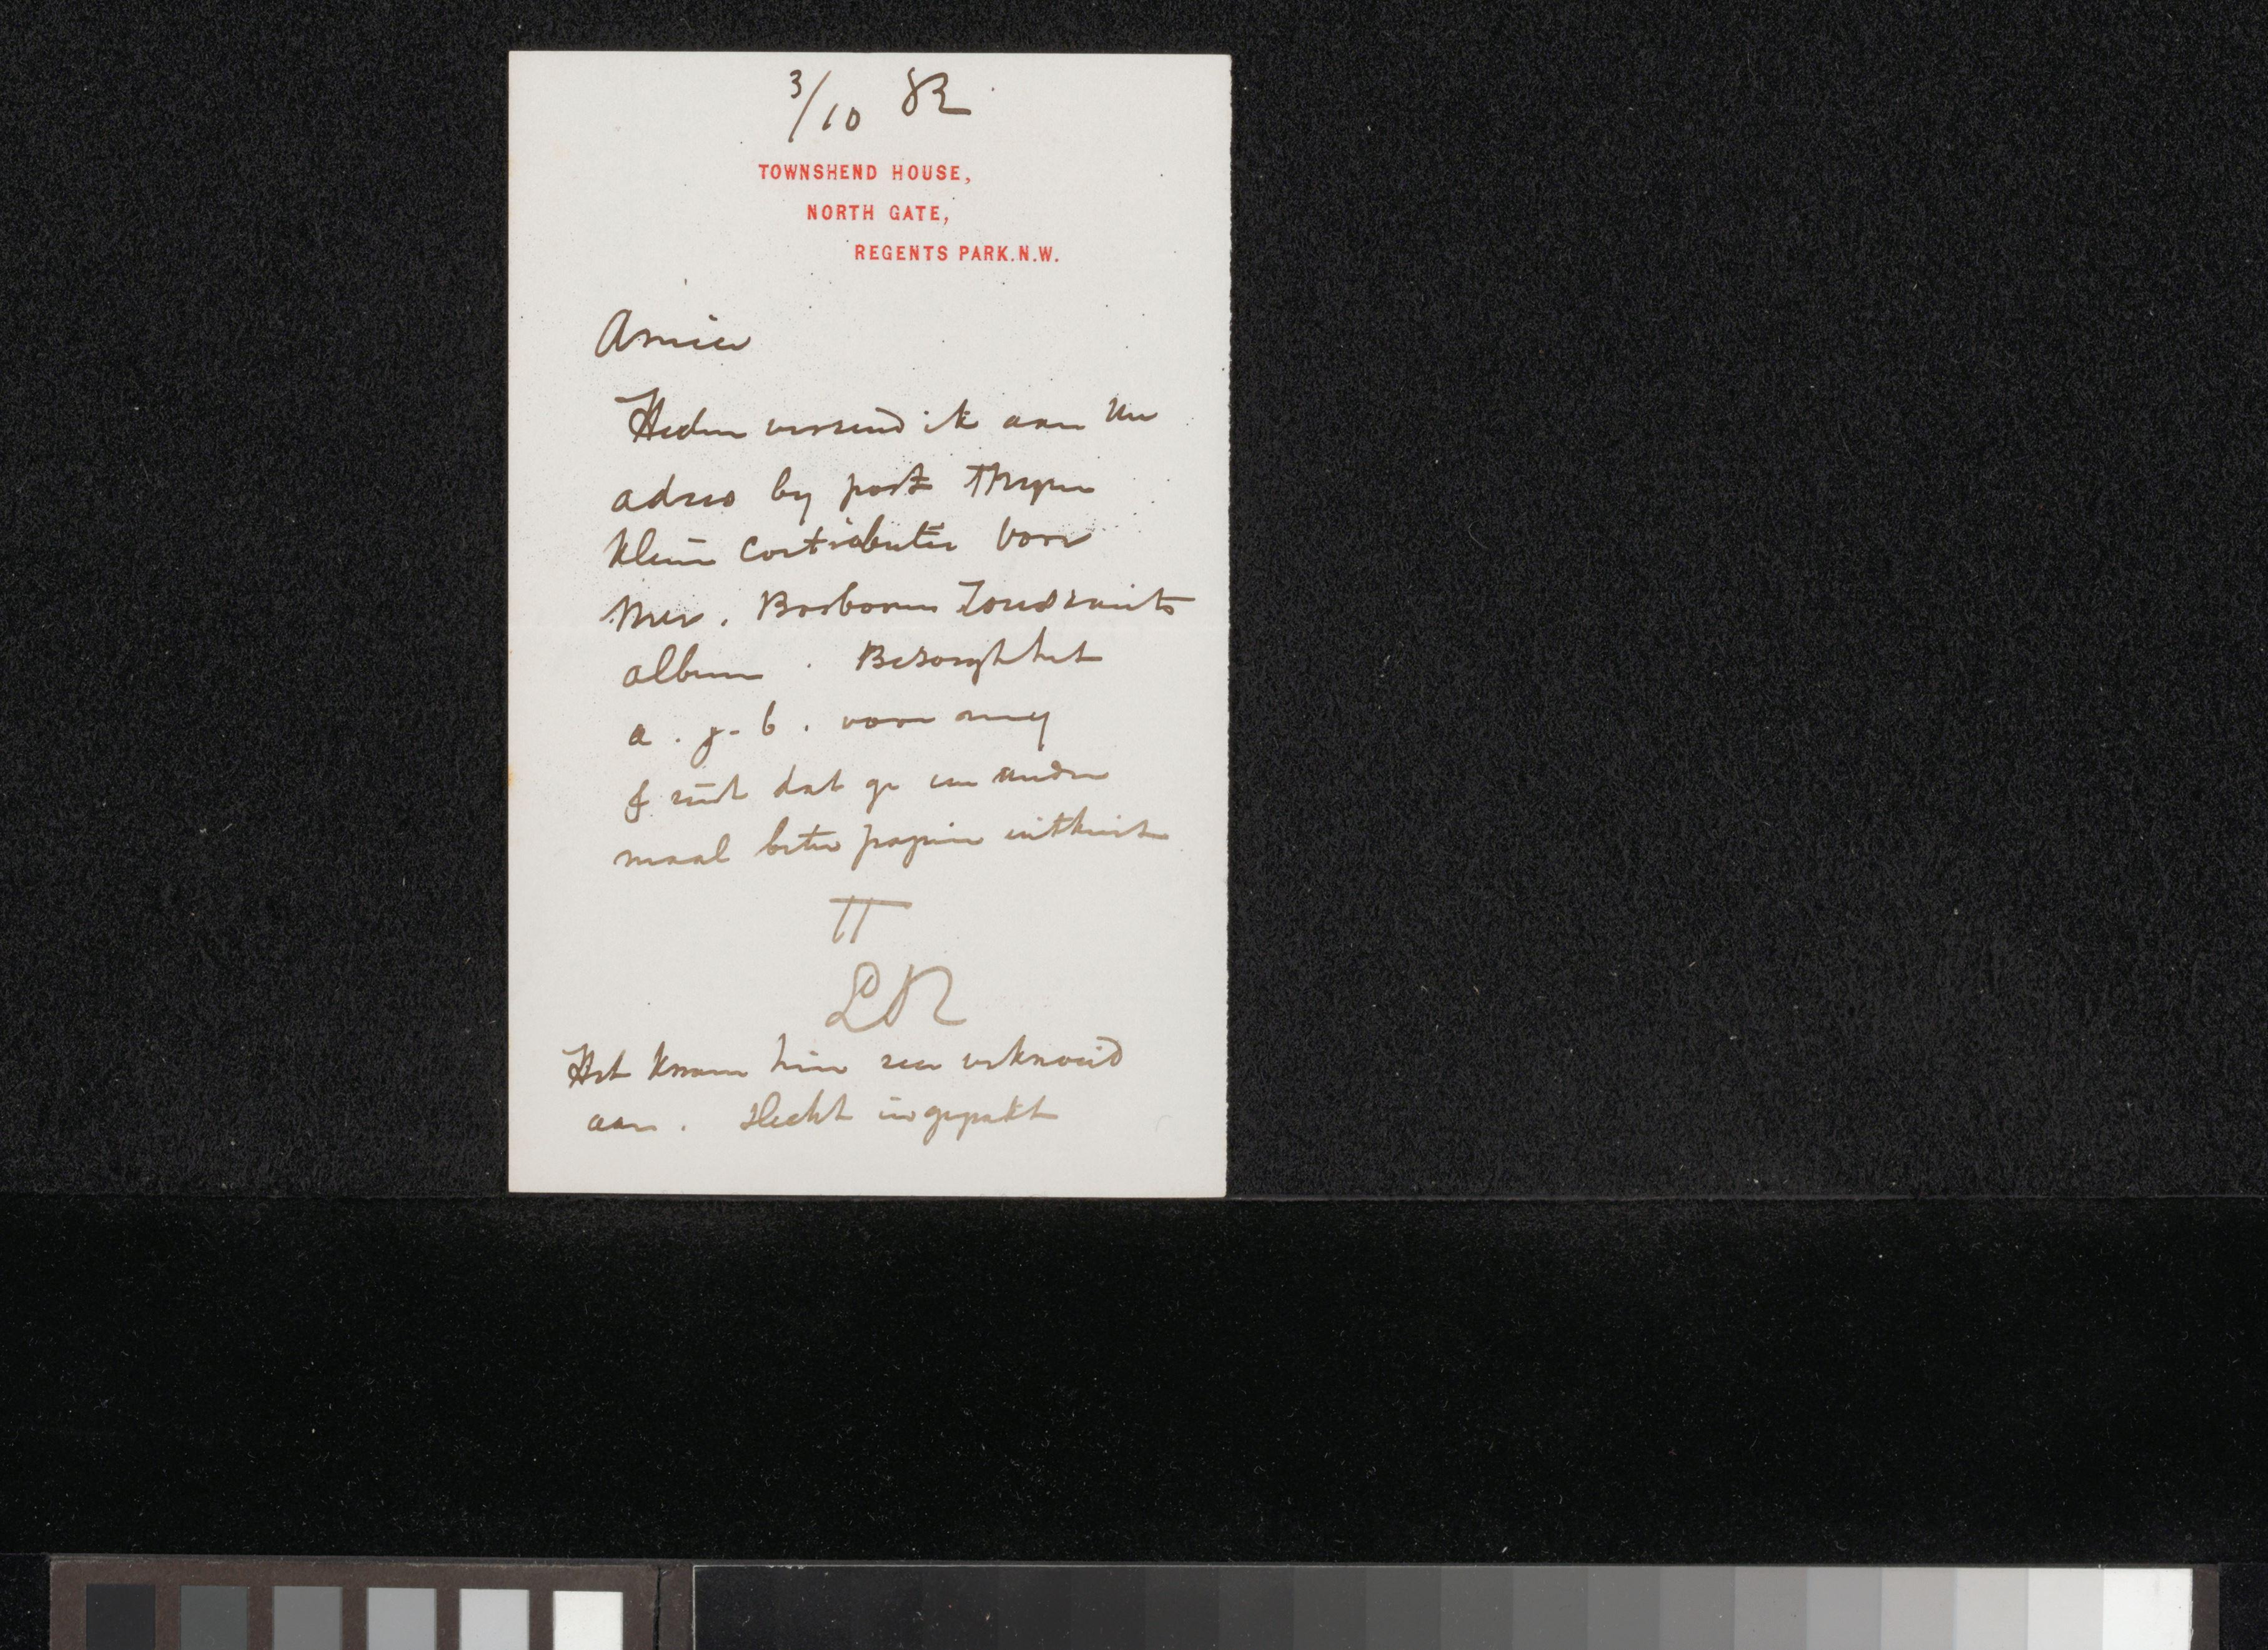 3/10 82
TOWNSHEND HOUSE,
NORTH GATE,
REGENTS PARK.N.W.
Amice
Heden verzend ik aan Uw
adres by post myne
kleine contributie voor
Mev. Bosboom Toussaints
album. Bezorght het
a.g.b. voor my
& ziet dat ge een ander
maal beter papier uitkiest
TT
Het kwam hier zeer verknoeid
aan. Slecht ingepakt